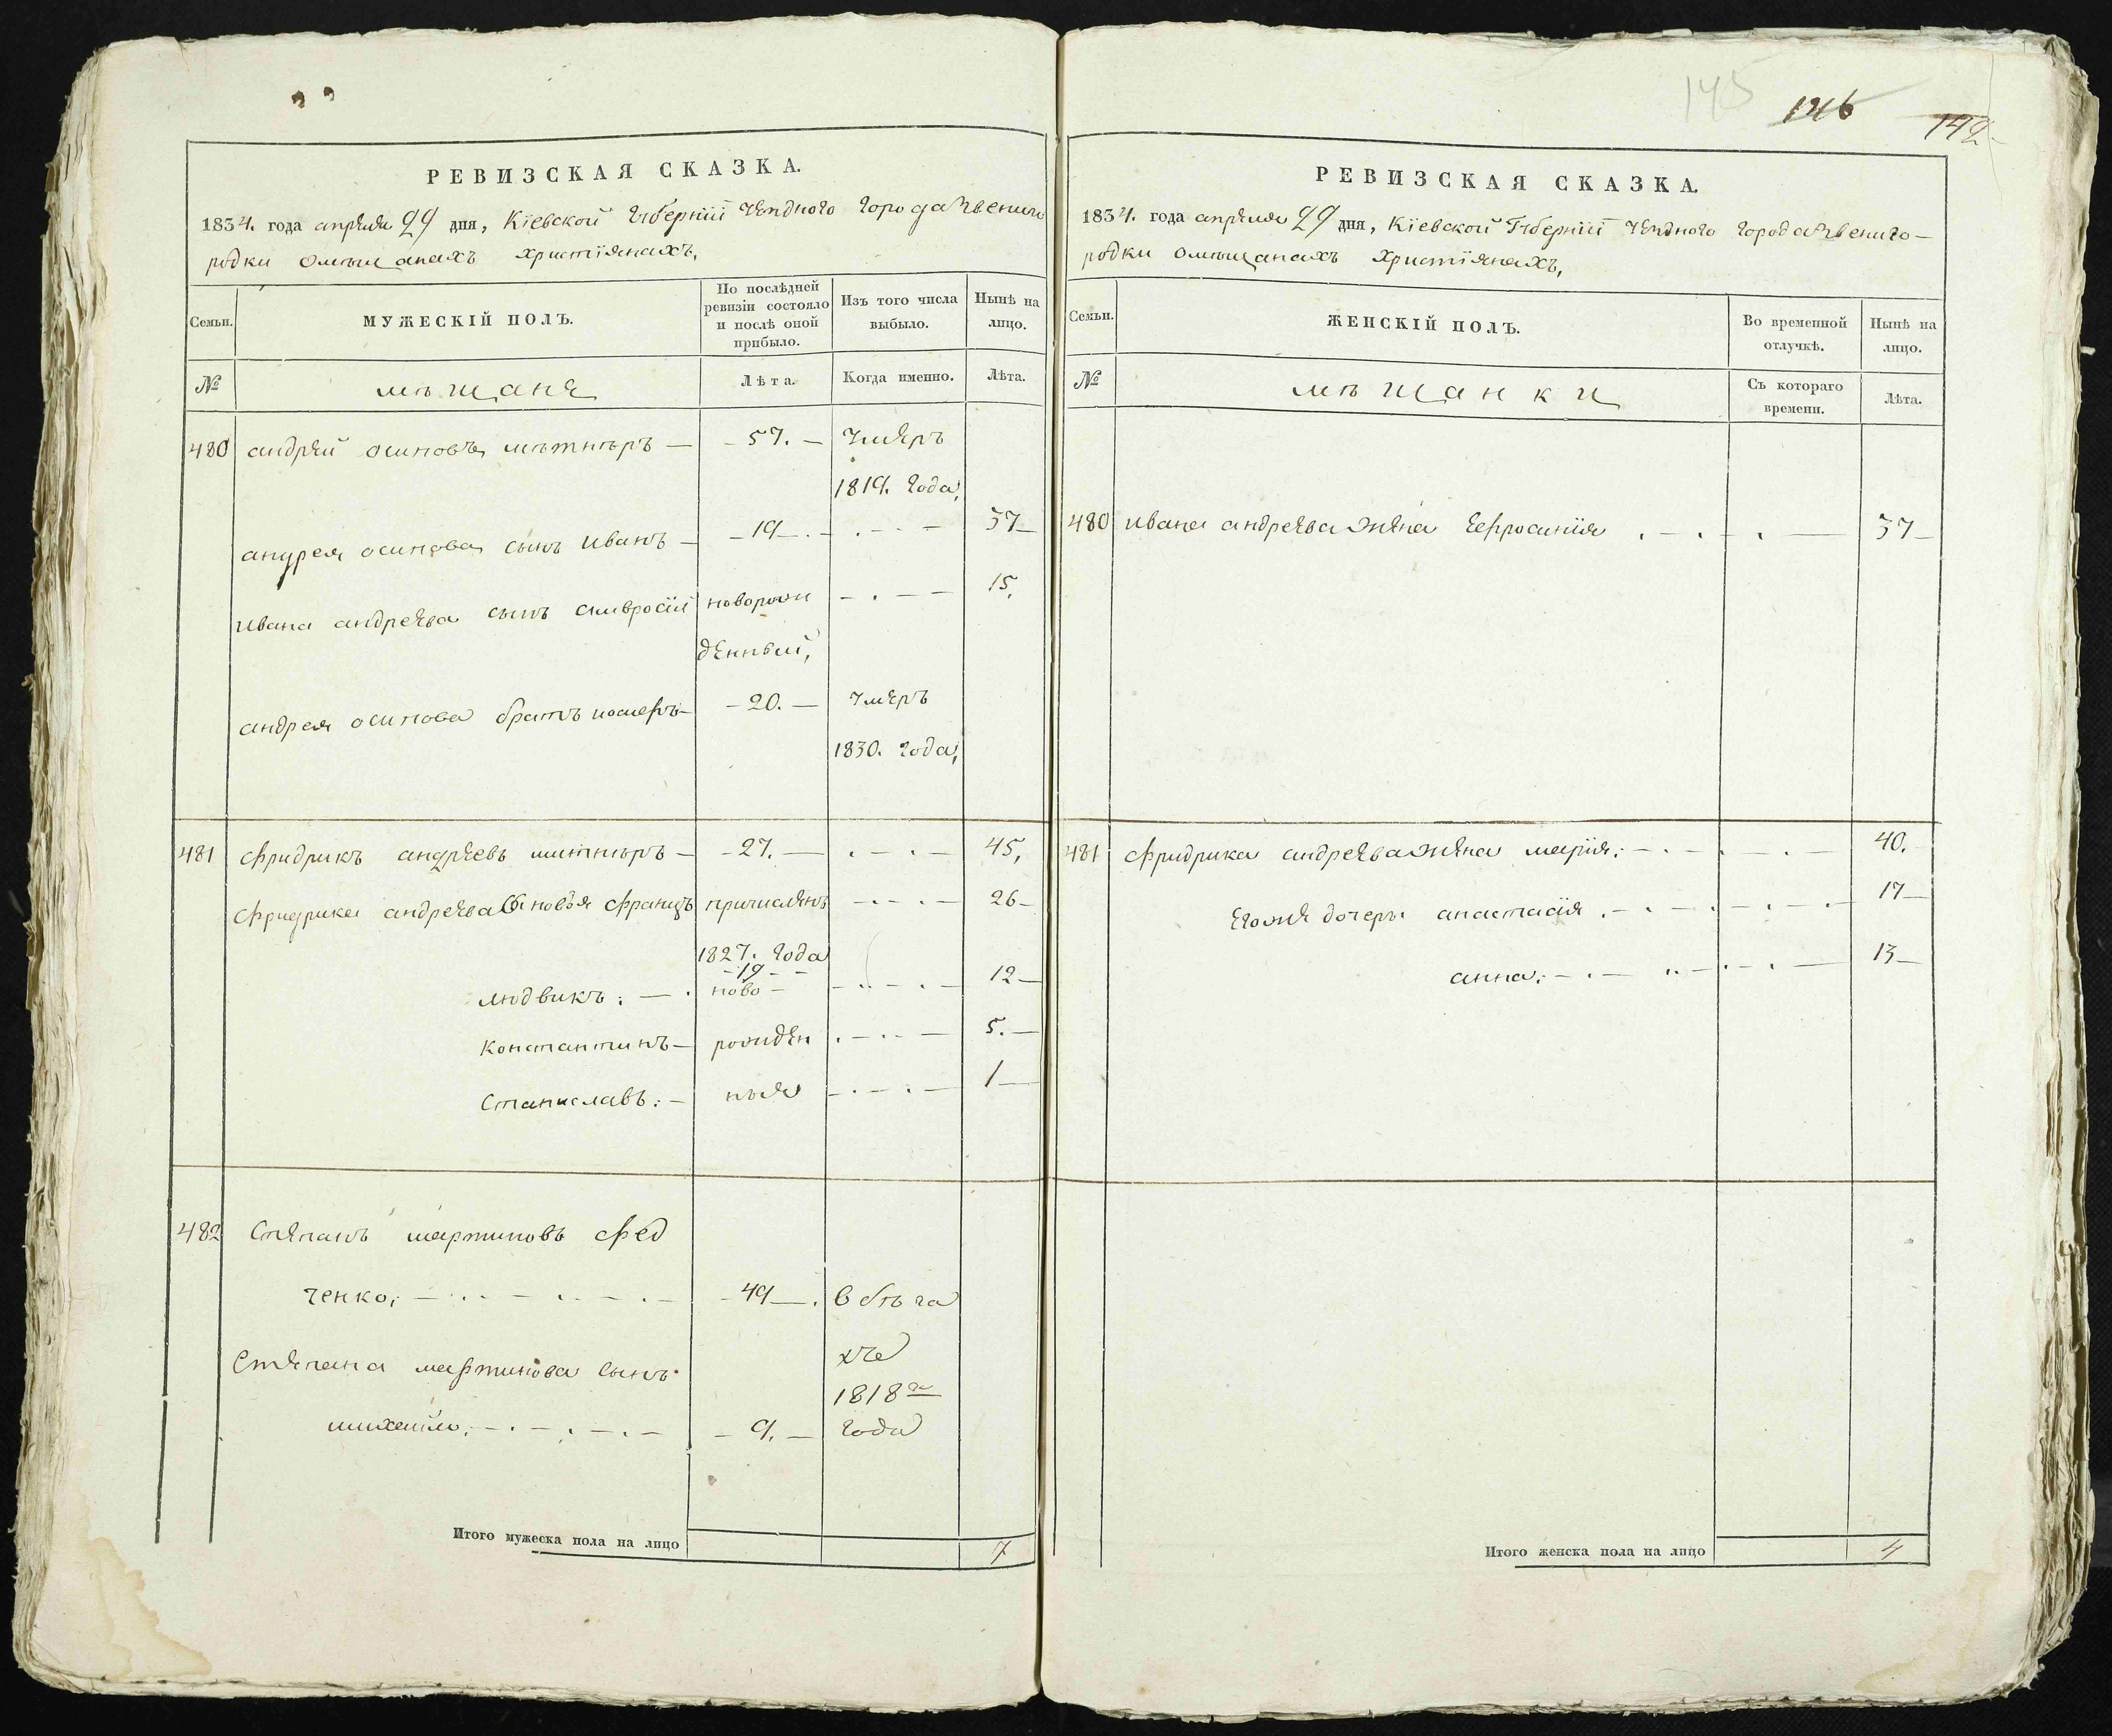 145
146
142
РЕВИЗСКАЯ СКАЗКА.
1834. года апреля 29 дня, Кіевской Губерніи Уездного города Звениго
родки омѣщанахъ християнахъ,
Семьи.
МУЖЕСКІЙ ПОЛЪ.
По послѣдней ревизіи состояло и послѣ оной прибыло.
Изъ того числа выбыло.
Нынѣ на лицо.
№
мѣщане
Лѣта.
Когда именно.
Лѣта.
480 андрей осиповъ — 57. — умеръ
1819. года,
андрея осипова сынъ иванъ — 19 — 37
ивана андреева сынъ амвросій новорож 15,
денный,
андрея осипова братъ — 20. — умеръ
1830. года,
481 фридрикъ андреевъ — 27. — 45,
фридрика андреева сыновья францъ причисленъ 26
1827. года
19
людвикъ: — ново — 12
константинъ — рожден 5.
станиславъ: — ныя 1
482 Степанъ мартиновъ Фед
ченко, 49 вбѣга
хъ
Степана мартинова сынъ
1818го
михаилъ, 9. года
Итого мужеска пола на лицо 7
РЕВИЗСКАЯ СКАЗКА.
1834. года апреля 29 дня, Кіевской Губерніи Уездного города Звениго—
родки омѣщанахъ християнахъ,
Семьи.
ЖЕНСКІЙ ПОЛЪ.
Во временной отлучкѣ.
Нынѣ на лицо.
№
мѣщанки
Съ котораго времени.
Лѣта.
480 ивана андреева жена Ефросинія 37
481 фридрика андреева жена марія: 40.
Егоже дочери анастасія 17
анна: 13
Итого женска пола на лицо 4